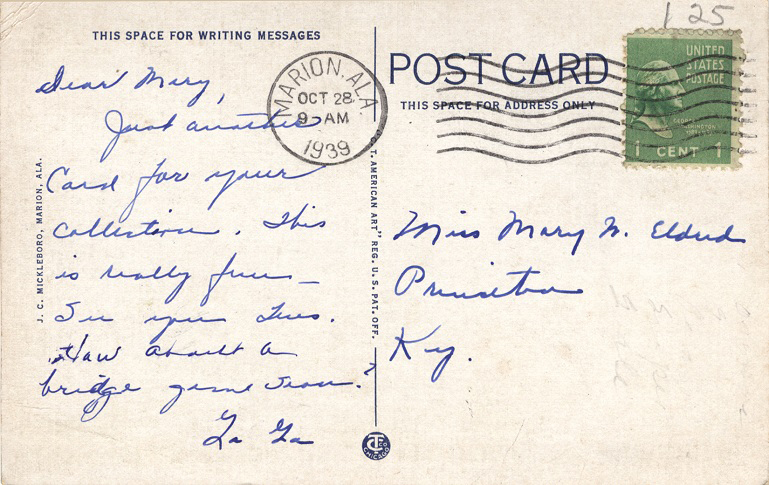 1 25
THIS SPACE FOR WRITING MESSAGES
POST CARD
THIS SPACE FOR ADDRESS ONLY
UNITED
STATES
POSTAGE
1 CENT 1
MARION, ALA.
OCT 28
9 AM
1939
Dear Mary,
Just another
Card for your
collection. This
is really fun –
See you Tues.
How about a
bridge game soon?
La La
Miss Mary N. Eldred
Princeton
Ky.
J. C. MICKLEBORO, MARION, ALA.
T. AMERICAN ART" REG. U. S. PAT. OFF.
CHICAGO